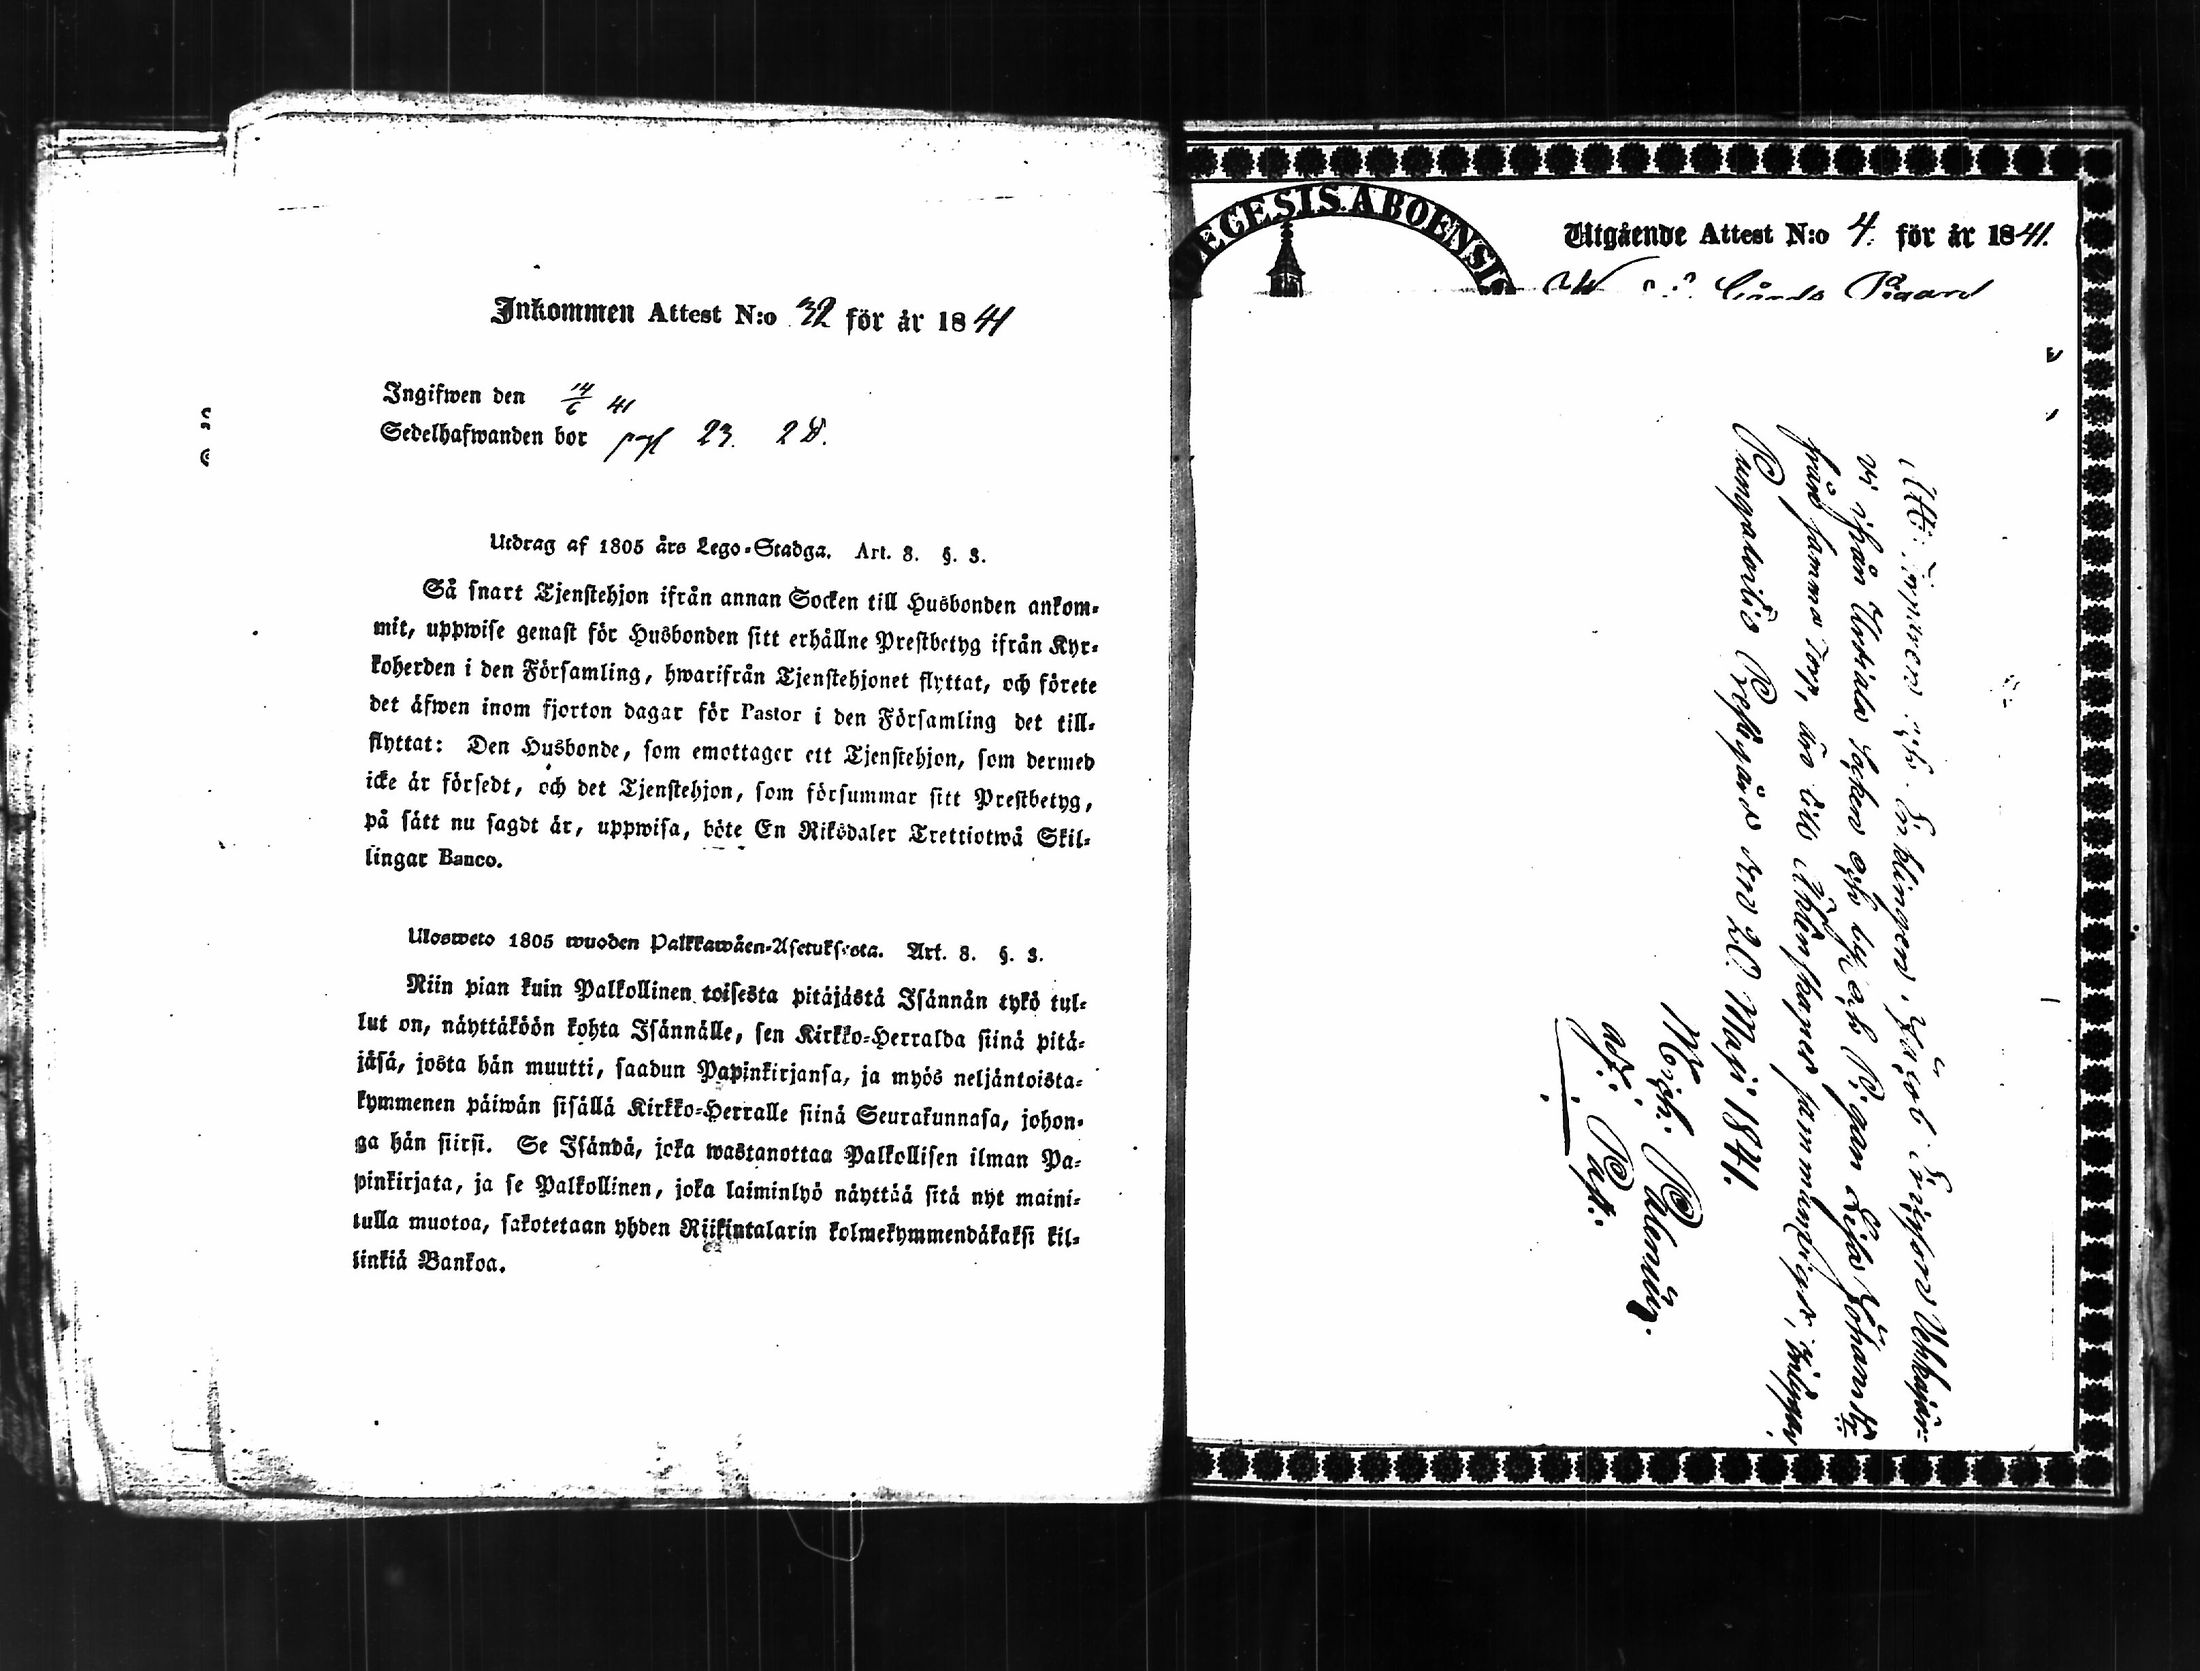 Inkommen Attest N:o 32 för år 1841
Ingifwen den 14/6 41
Sedelhafwanden bor pag 23. 2 D.
Utdrag af 1805 års Lego-Stadga. Art. 8. §. 3.
Så snart Tjenstehjon ifrån annan Socken till Husbonden ankom-
mit, uppwise genast för Husbonden sitt erhållne Prestbetyg ifrån Kyr-
koherden i den Församling, hwarifrån Tjenstehjonet flyttat, och förete
det äfwen inom fjorton dagar för Pastor i den Församling det till-
flyttat: Den Husbonde, som emottager ett Tjenstehjon, som dermed
icke är försedt, och det Tjenstehjon, som försummar sitt Prestbetyg,
på sätt nu sagdt är, uppwisa, böte En Riksdaler Trettiotwå Skil-
lingar Banco.
Ulosweto 1805 wuoden Palkkawäen-Asetuksesta. Art. 8. §. 3.
Niin pian kuin Palkollinen toisesta pitäjästä Isännän tykö tul-
lut on, näyttäköön kohta Isännälle, sen Kirkko-Herralda siinä pitä-
jäsä, josta hän muutti, saadun Papinkirjansa, ja myös neljäntoista-
kymmenen päiwän sisällä Kirkko-Herralle siinä Seurakunnasa, johon-
ga hän siirsi. Se Isändä, joka wastanottaa Palkollisen ilman Pa-
pinkirjata, ja se Palkollinen, joka laiminlyö näyttää sitä nyt maini-
tulla muotoa, sakotetaan yhden Riikintalarin kolmekymmendäkaksi kil-
linkiä Bankoa.
ECESIS. ABOENSIS
Utgående Attest N:o 4. för år 1841.
Att Torparen och Enklingen Jacob Ericsson
ifrån Urdiala Socken och Pigan Lisa Johansdr
från samma Torp, äro till Äktenskapet
Pungaloitio Prestgård den 20 Maji 1841.
Mich. Polemius.
adj: Past: